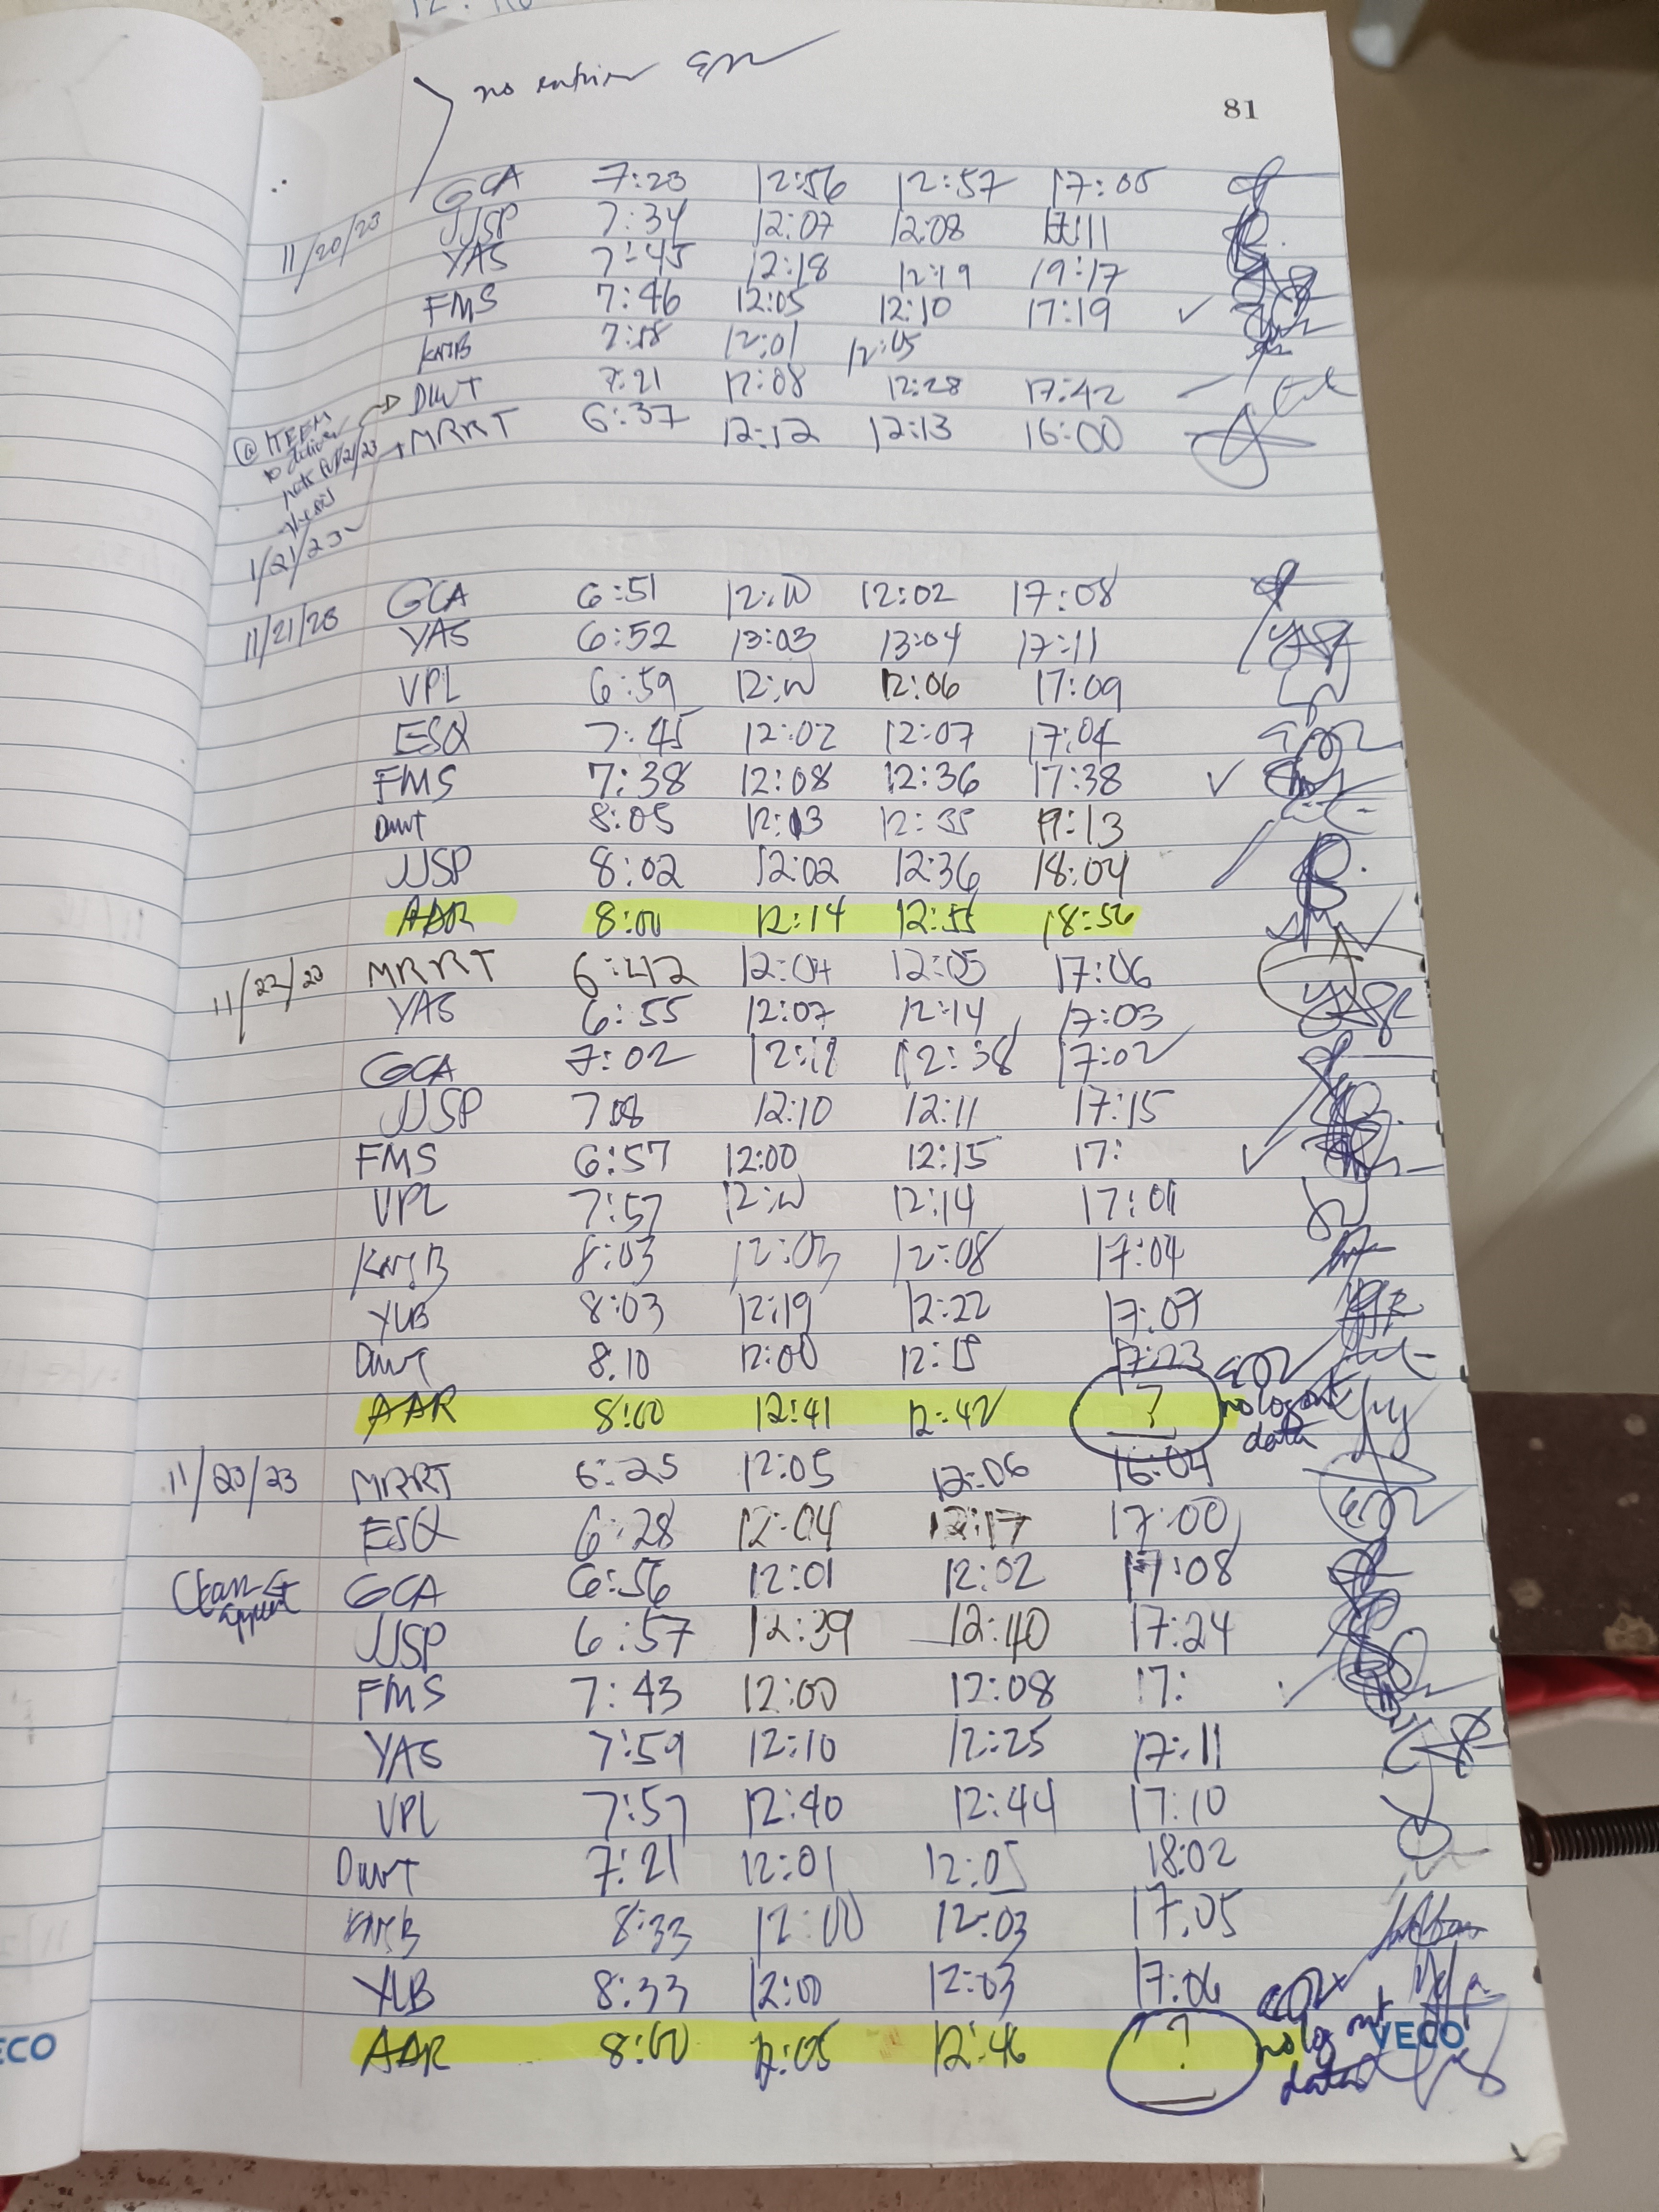 no entries
81
GCA 7:23 12:56 12:57 17:05
11/20/23 JJSP 7:34 12:07 12:08 17:11
YAS 7:45 12:18 12:19 19:17
FMS 7:46 12:05 12:10 17:19 ✓
KNJB 12:01 12:05
DWT 7:21 12:08 12:28 17:42
MRRT 6:37 12:12 12:13 16:00
1/21/23
GCA 6:51 12:02 17:08
11/21/23 YAS 6:52 13:03 13:04 17:11
VPL 6:59 12:06 17:09
ESQ 7:45 12:02 12:07 17:04
FMS 7:38 12:08 12:36 17:38 ✓
DWT 8:05 12:13 12:35
JJSP 8:02 12:02 12:36 18:04
AAR 8:00 12:14 12:55 18:56
11/22/23 MRRT 6:42 12:04 12:05 17:06
YAS 6:55 12:07 12:14 17:03
GCA 7:02 12:38 17:02
JJSP 7:08 12:10 12:11 17:15
FMS 6:57 12:00 12:15 17: ✓
VPL 7:57 12:14 17:01
KNJB 8:03 12:03 12:08 17:04
YLB 8:03 12:19 12:22 17:07
DWT 8.10 12:00 12:15 17:23
AAR 8:00 12:41 12:42 ? no log out
data
11/23/23 MRRT 6:25 12:05 12:06 16:04
ESQ 6:28 12:04 12:17 17:00
GCA 6:56 12:01 12:02 17:08
JJSP 6:57 12:39 12:40 17:24
FMS 7:43 12:00 12:08 17:
YAS 7:59 12:10 12:25 17:11
VPL 7:57 12:40 12:44 17:10
DWT 7:21 12:01 12:05 18:02
KNJB 8:33 12:00 12:03 17:05
YLB 8:33 12:00 12:03 17:06
AAR 8:00 12:05 12:46 ? no log out
data
VECO
ECO